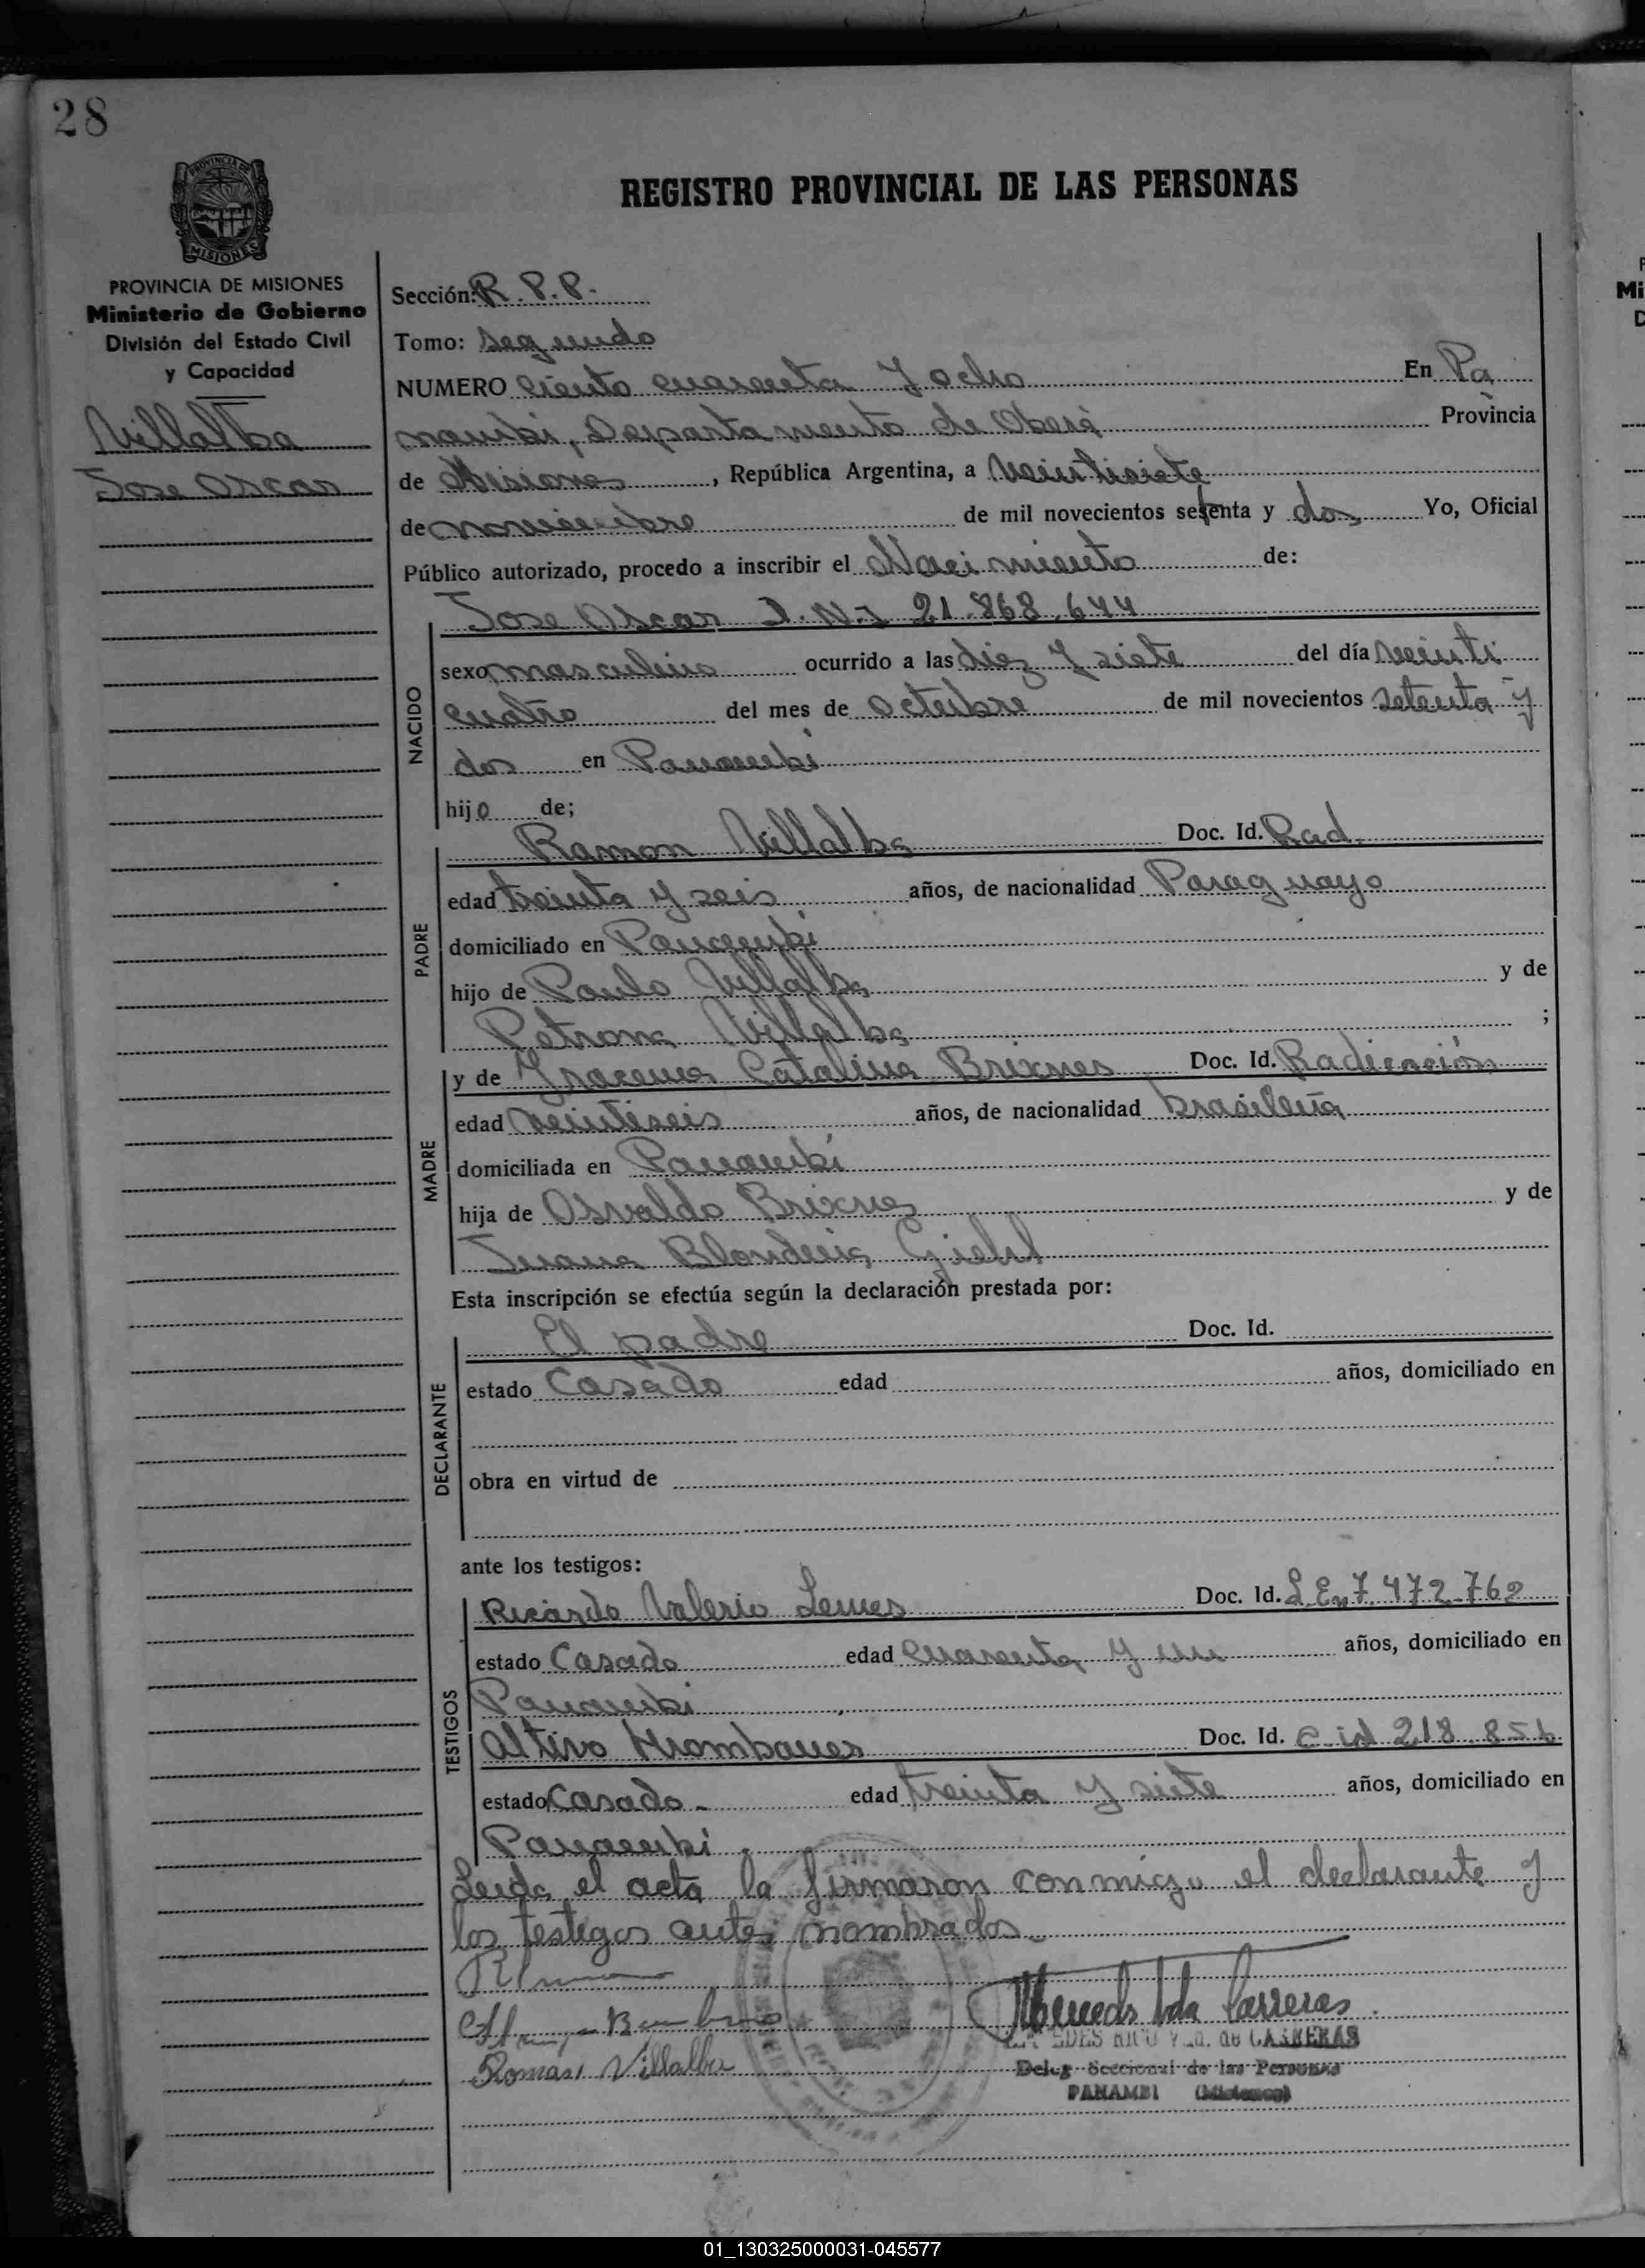 28
PROVINCIA DE
MISIONES
REGISTRO PROVINCIAL DE LAS PERSONAS
PROVINCIA DE MISIONES
Ministerio de Gobierno
División del Estado Civil
y Capacidad
Villalba
Jose Oscar
Sección: R. P. P.
Tomo: Segundo
NUMERO Ciento cuarenta y ocho En Pa
nambi, Departamento de Oberá Provincia
de Misiones, República Argentina, a Veintisiete
de noviembre de mil novecientos setenta y dos Yo, Oficial
Público autorizado, procedo a inscribir el Nacimiento de:
Jose Oscar D.N.I 21.868.644
NACIDO
sexo masculino ocurrido a las diez y siete del día veinti
cuatro del mes de Octubre de mil novecientos setenta y
dos en Panambi
hijo de;
PADRE
Ramon Villalba Doc. Id. Rad.
edad treinta y seis años, de nacionalidad Paraguayo
domiciliado en Panambi
hijo de Paulo Villalba y de
Petrona Villalba ;
MADRE
y de Catalina Brixnes Doc. Id. Radicación
edad veintiseis años, de nacionalidad brasileña
domiciliada en Panambi
hija de Osvaldo Brixnes y de
Juana Blondina Giehl
Esta inscripción se efectúa según la declaración prestada por:
DECLARANTE
El padre Doc. Id.
estado Casado edad años, domiciliado en
obra en virtud de
ante los testigos:
TESTIGOS
Ricardo Valerio Lemes Doc. Id. L.E. 7.472.762
estado Casado edad cuarenta y un años, domiciliado en
Panambi
Altivo Doc. Id. c.id 218.856
estado Casado edad treinta y siete años, domiciliado en
Panambi
Leida el acta la firmaron conmigo el declarante y
los testigos antes nombrados.
Mercedes Carreras.
de CARRERAS
Deleg Seccional de las Personas
PANAMBI (Misiones)
Roman Villalba
01_130325000031-045577